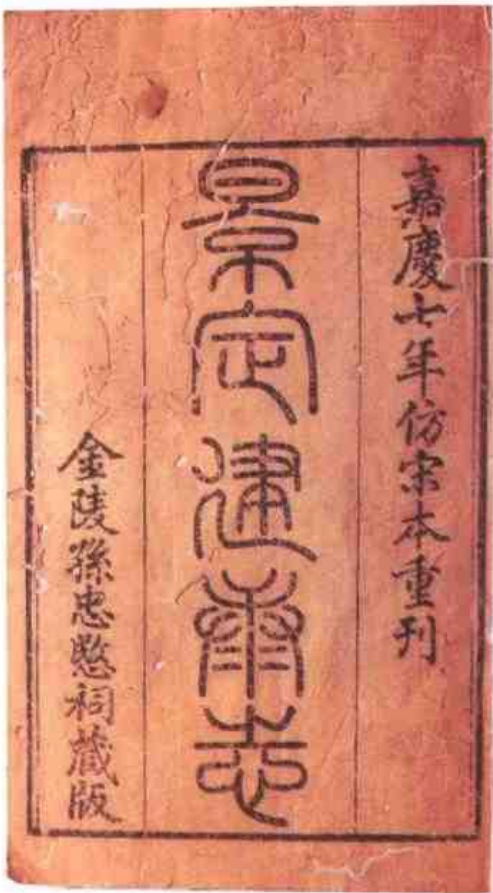 嘉慶七年仿宋本重刊
景定建康志
金陵孫忠愍祠藏版